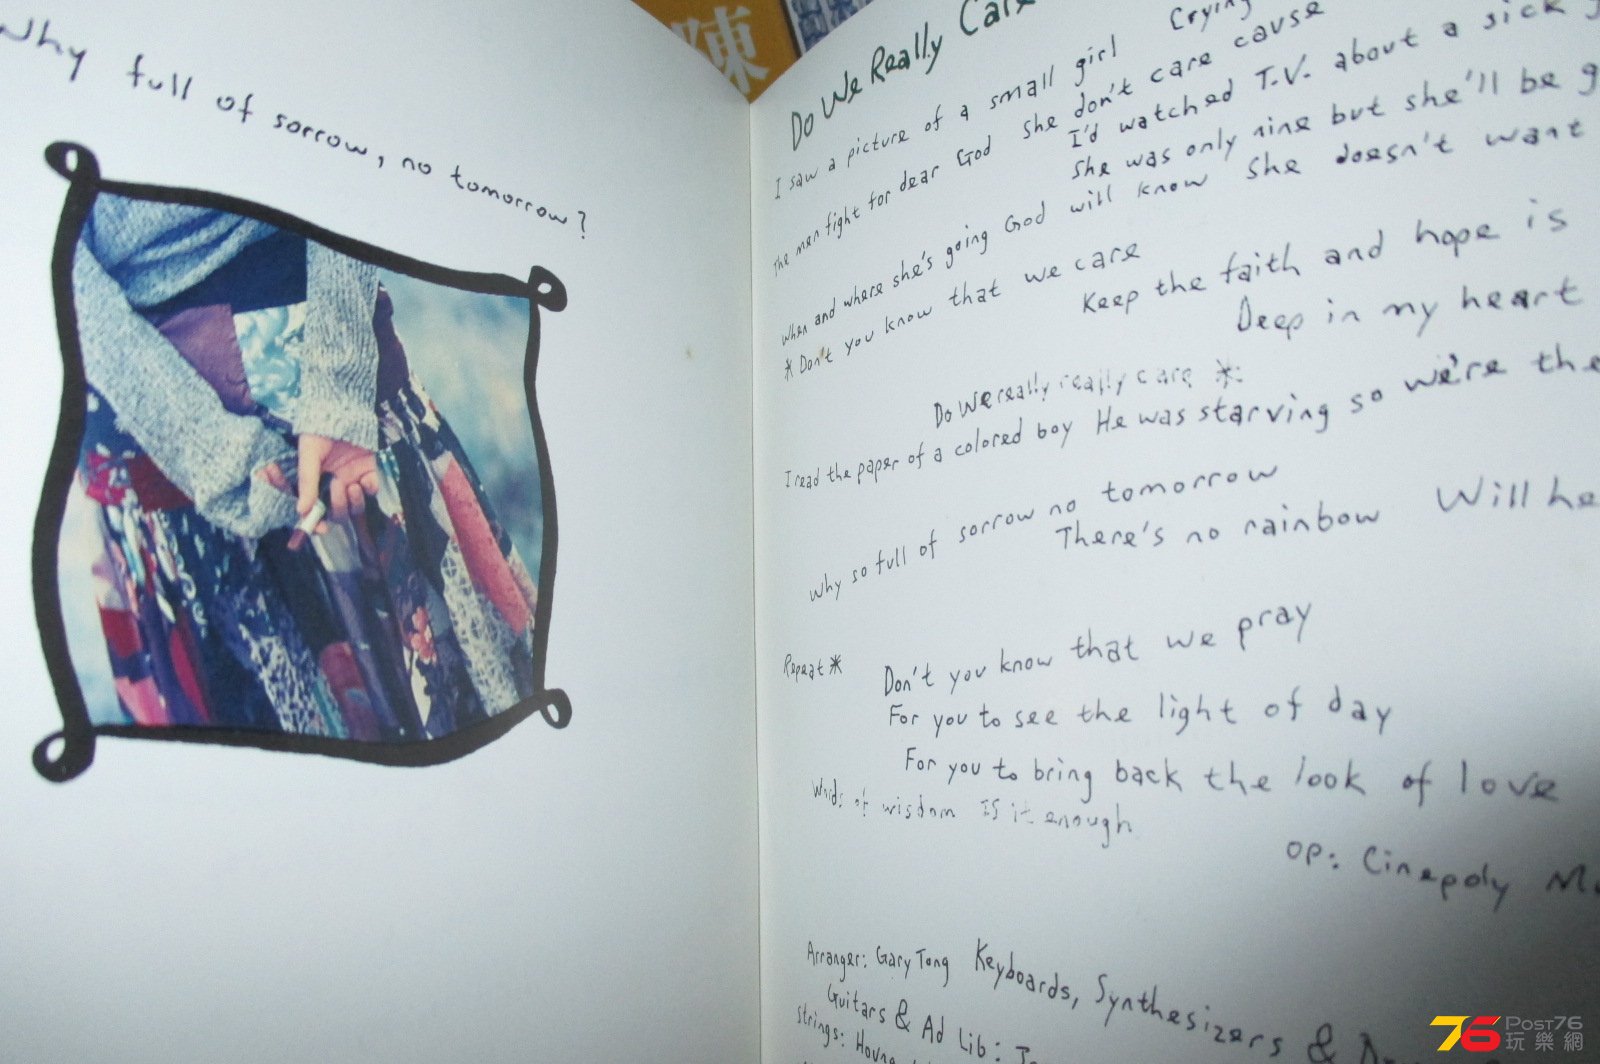 Why full of sorrow, no tomorrow?
陳
Do We Really Care
I saw a picture of a small girl Crying
The men fight for dear God She don't care cause
I'd watched T.V. about a sick
She was only nine but she'll be
When and where she's going God will know She doesn't want
* Don't you know that we care
Keep the faith and hope is
Deep in my heart
Do We really really care *
I read the paper of a colored boy He was starving so we're the
Why so full of sorrow no tomorrow
There's no rainbow Will he
Repeat *
Don't you know that we pray
For you to see the light of day
For you to bring back the look of love
Words of wisdom Is it enough
OP: Cinepoly
Arranger: Gary Tong Keyboards, Synthesizers &
Guitars & Ad Lib:
Strings:
76 Post76
玩樂網